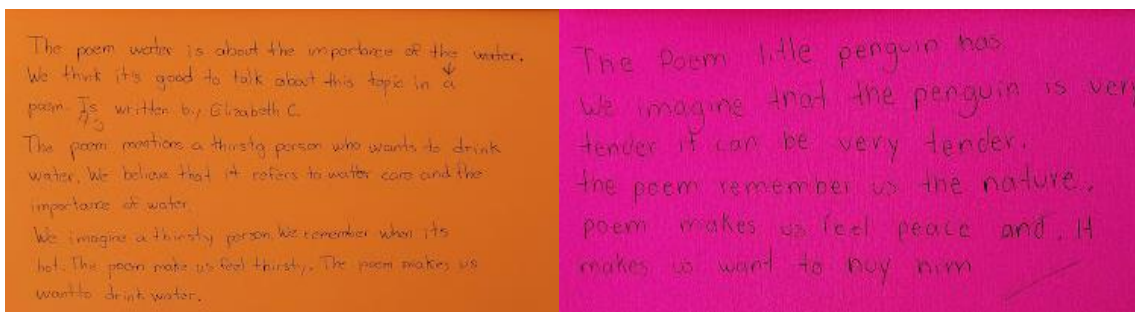 The poem water is about the importance of the water.
We think it's good to talk about this topic in a
poem. Is written by Elizabeth C.
The poem mentions a thirsty person who wants to drink
water. We believe that it refers to water care and the
importance of water.
We imagine a thirsty person. We remember when its
hot. The poem make us feel thirsty. The poem makes us
want to drink water.
The Poem little penguin has
We imagine that the penguin is very
tender it can be very tender.
the poem remember us the nature.
poem makes us feel peace and. It
makes us want to him